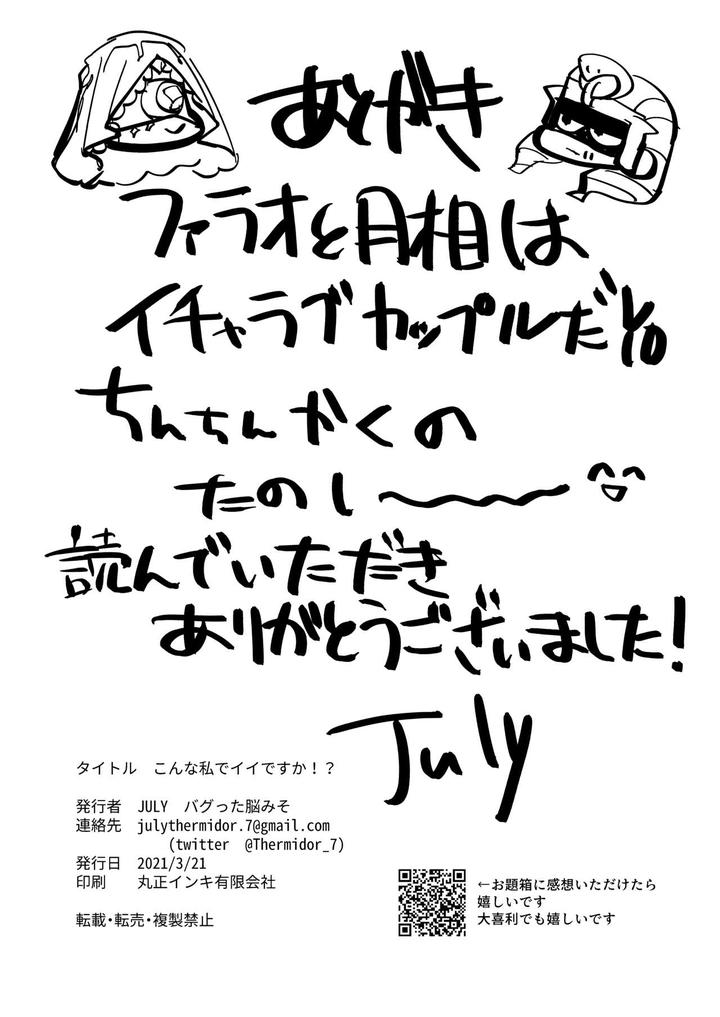 あとがき
ファラオと月相は
イチャラブカップルだよ
ちんちんかくの
たのし〜
読んでいただき
ありがとうございました!
July
タイトル　こんな私でイイですか!?
発行者　JULY　バグった脳みそ
連絡先　julythermidor.7@gmail.com
(twitter　@Thermidor_7)
発行日　2021/3/21
印刷　　丸正インキ有限会社
転載・転売・複製禁止
←お題箱に感想いただけたら
嬉しいです
大喜利でも嬉しいです